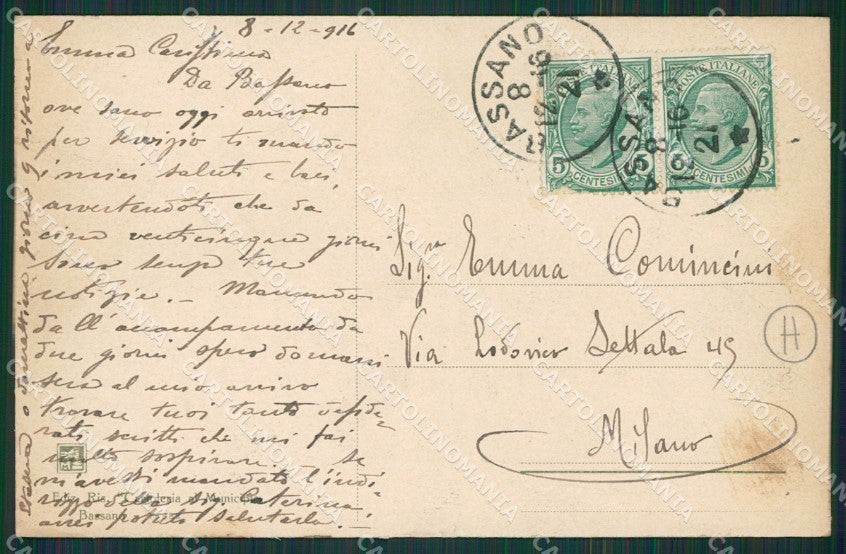 8-12-916
Emma Carissima
Da Bassano
ove sono oggi arrivato
per servizio ti mando
i miei saluti e baci,
avvertendoti che da
circa venticinque giorni
sono senza tue
notizie. - Mancando
dall'accampamento da
due giorni spero domani
sera al mio arrivo
trovare tuoi tanto deside-
rati scritti che mi fai
molto sospirare. Se
mi avessi mandato l'indi-
rizzo della Sig. Caterina
avrei potuto salutarla.-
Stasera o domattina giorno 9 ritorno a
Ediz. Ria. Cartoleria al Municipio
Bassano
BASSANO
8-12-16
21
POSTE ITALIANE
5 CENTESIMI 5
BASSANO
8-12-16
21
POSTE ITALIANE
5 CENTESIMI 5
Sig.ra Emma Comincini
Via Lodovico Settala 45
Milano
H
CARTOLINOMANIA